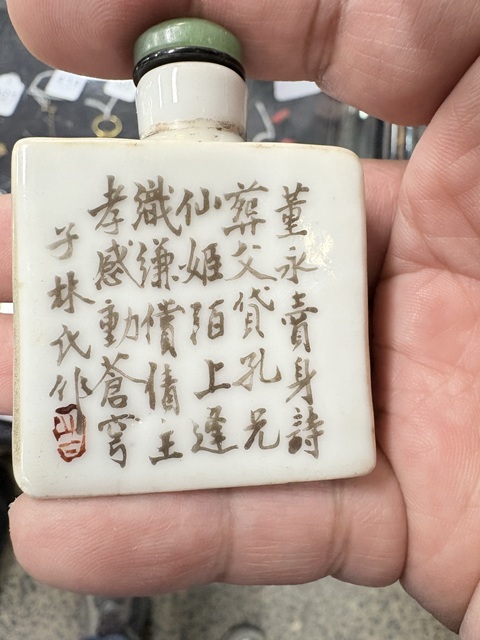 董永賣身詩
葬父貸孔兄
仙姬陌上逢
織縑償債主
孝感動蒼穹
子林氏作